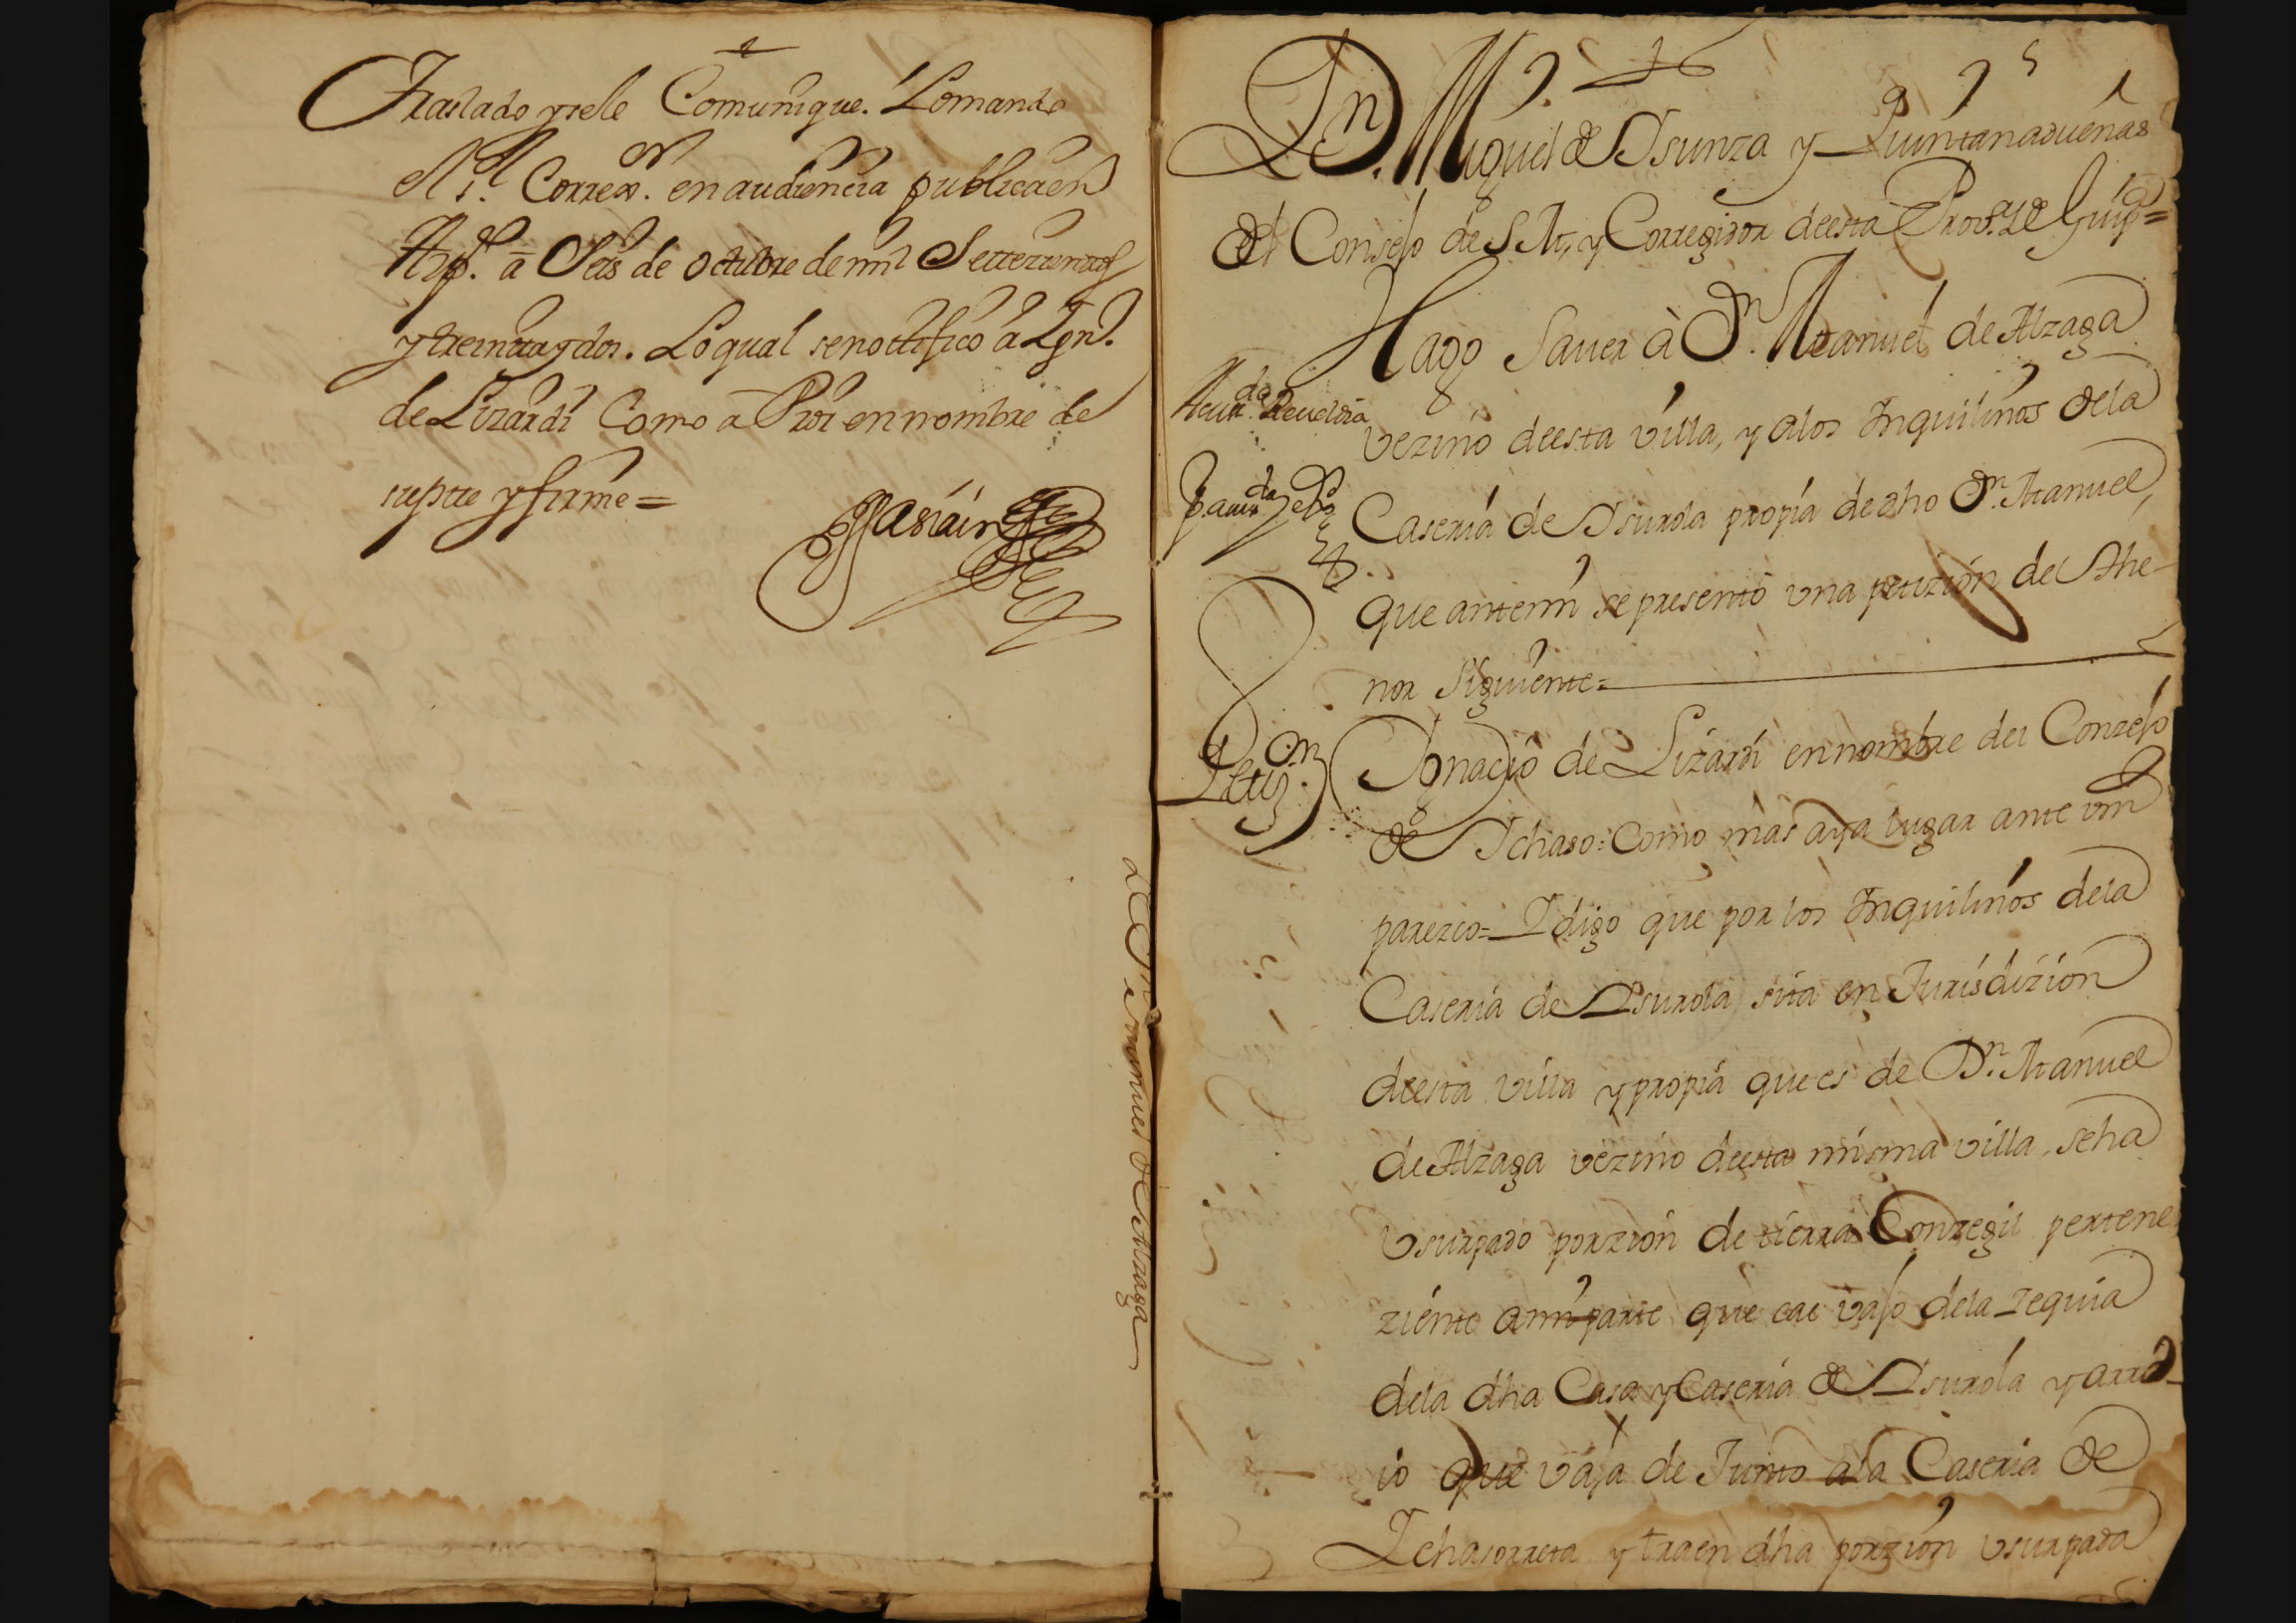 Traslado y se le Comunique. Lo mando
el S.r Correx.or en audiencia publica en
Azp.a a Seis de octubre de mil Settezientos
y treinta y dos. Lo qual se nottifico a Ign.o
de Lizardi Como a Pror en nombre de
su ptte y firme =
D Manuel de Alzaga
Dn. Miguel de Isunza y Quintanadueñas
del Consejo de S M, y Corregidor de esta Prov.a de Guip.a =
Hago Saver à Dn. Manuel de Alzaga
vezino de esta villa, y a los Inquilinos de la
Caseria de Isurola propia de dho Dn. Manuel,
que ante mi se presentò una petizion del The-
nor Siguiente =
Acus.da Reveldia
Petiz.on
Ignacio de Lizardi en nombre del Conzejo
de Ichaso: Como mas aya lugar ante vm
parezco = I digo que por los Inquilinos de la
Caseria de Isurola sita en Jurisdizion
de esta villa y propia que es de Dn. Manuel
de Alzaga vezino de esta misma villa, se ha
vsurpado porzion de tierra Conzegil pertene
ziente a mi parte que cae vajo de la zequia
de la dha Casa y Caseria de Isurola y arro-
io que vaja de Junto a la Caseria de
Ichasorreta y traen dha porzion vsurpada